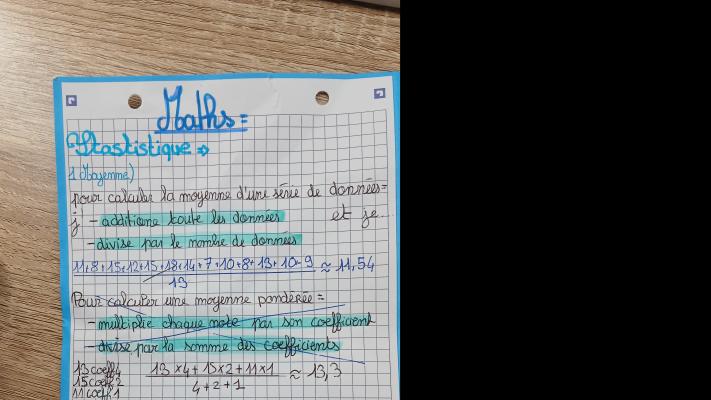 Maths =
Stastistique →
1 Moyenne)
pour calculer la moyenne d'une série de données =
j' - additione toute les données et je
- divise par le nombre de données
11+8+15+12+15+18+14+7+10+8+13+10+9 ≈ 11,54
13
Pour calculer une moyenne pondérée =
- multiplie chaque note par son coefficient
- divise par la somme des coefficients
13 coeff 4 13×4+15×2+11×1 ≈ 13,3
15 coeff 2 4+2+1
11 coeff 1